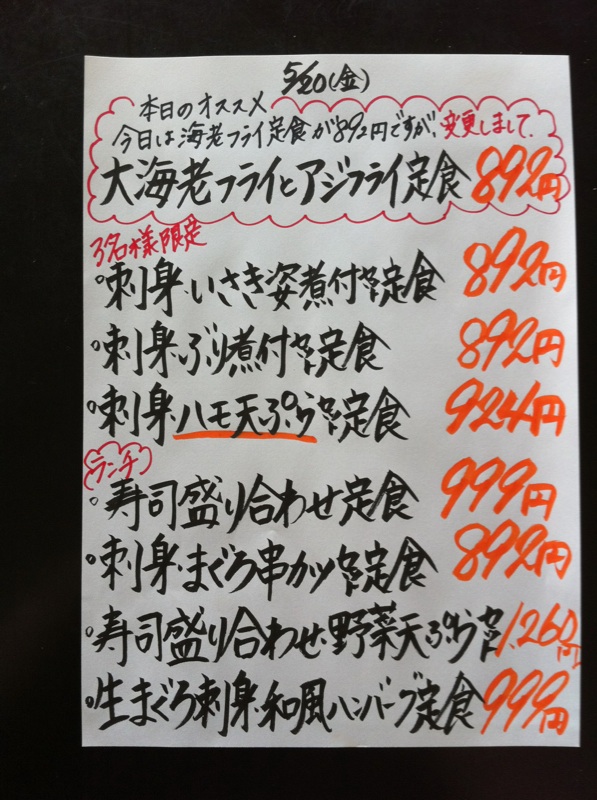 5/20(金)
本日のオススメ
今日は海老フライ定食が892円ですが、変更しまして、
大海老フライとアジフライ定食 892円
3名様限定
。刺身・いさき姿煮付セット定食 892円
。刺身・ぶり煮付セット定食 892円
。刺身・ハモ天ぷらセット定食 924円
ランチ
。寿司盛り合わせ定食 999円
。刺身・まぐろ串カツセット定食 892円
。寿司盛り合わせ・野菜天ぷらセット 1,260円
。生まぐろ刺身・和風ハンバーグ定食 999円